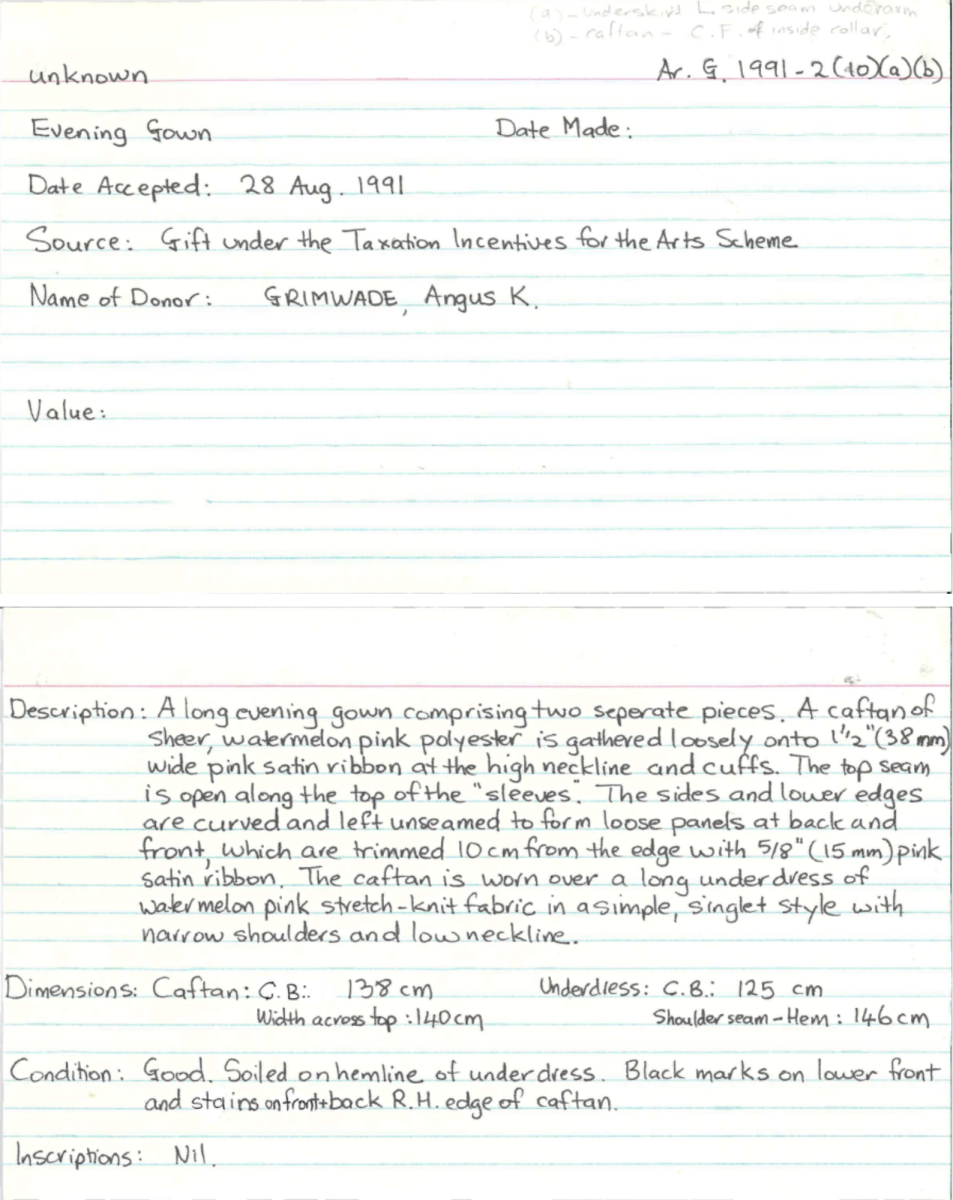 (a) - Underskirt L. side seam underarm
(b) - caftan - C.F. of inside collar,
unknown Ar. G. 1991-2(10)(a)(b)
Evening Gown Date Made:
Date Accepted: 28 Aug. 1991
Source: Gift under the Taxation Incentives for the Arts Scheme
Name of Donor: GRIMWADE, Angus K.
Value:
Description: A long evening gown comprising two seperate pieces. A caftan of
sheer, watermelon pink polyester is gathered loosely onto 1½" (38 mm)
wide pink satin ribbon at the high neckline and cuffs. The top seam
is open along the top of the "sleeves". The sides and lower edges
are curved and left unseamed to form loose panels at back and
front, which are trimmed 10 cm from the edge with 5/8" (15 mm) pink
satin ribbon. The caftan is worn over a long underdress of
watermelon pink stretch-knit fabric in a simple, singlet style with
narrow shoulders and low neckline.
Dimensions: Caftan: C.B.: 138 cm Underdress: C.B.: 125 cm
Width across top: 140 cm Shoulder seam - Hem: 146 cm
Condition: Good. Soiled on hemline of underdress. Black marks on lower front
and stains on front + back R.H. edge of caftan.
Inscriptions: Nil.